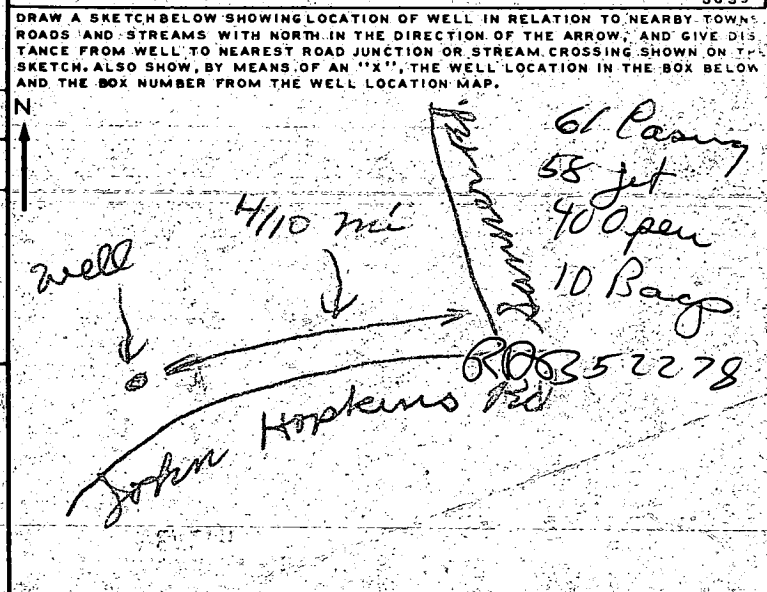 DRAW A SKETCH BELOW SHOWING LOCATION OF WELL IN RELATION TO NEARBY TOWNS
ROADS AND STREAMS WITH NORTH IN THE DIRECTION OF THE ARROW, AND GIVE DIS
TANCE FROM WELL TO NEAREST ROAD JUNCTION OR STREAM CROSSING SHOWN ON THE
SKETCH. ALSO SHOW, BY MEANS OF AN "X", THE WELL LOCATION IN THE BOX BELOW
AND THE BOX NUMBER FROM THE WELL LOCATION MAP.
N
61 Casing
58 jet
40 Open
10 Bags
4/10 mi
Well
52278
John Hopkins Rd